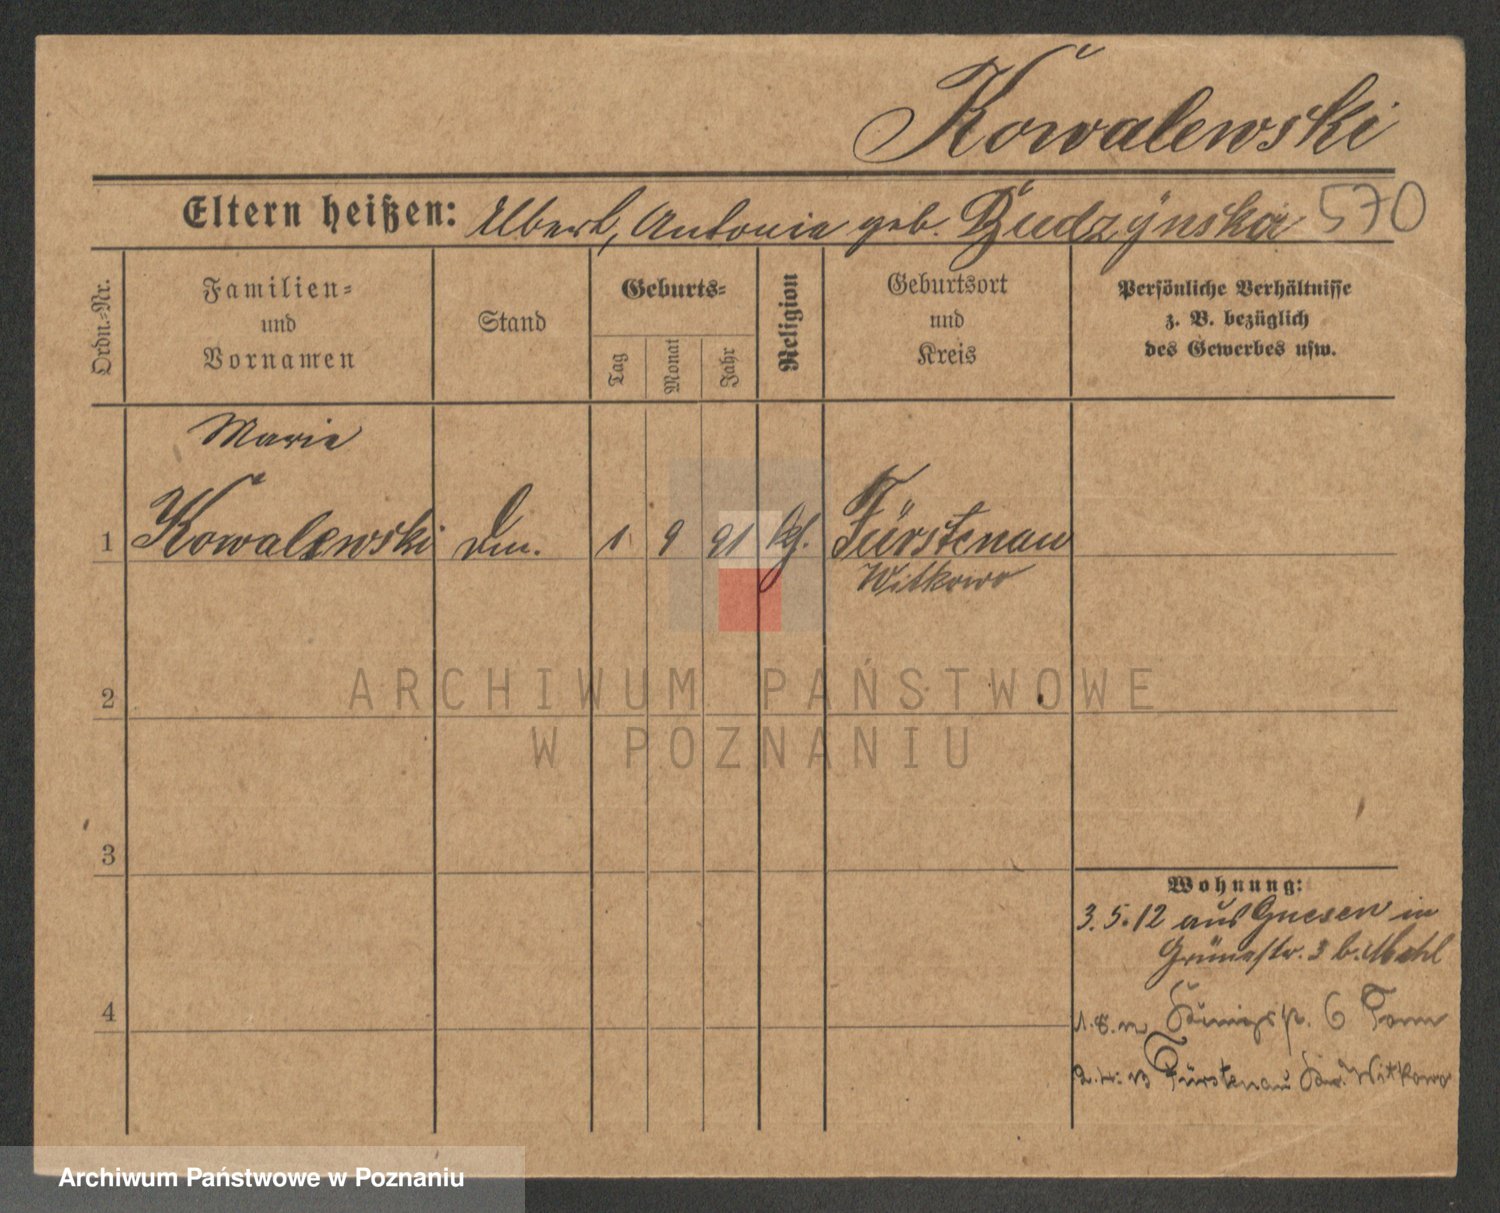 Kowalewski
Eltern heißen: Albert, Antonie geb. Budzÿnska 570
Ordn.-Nr.
Familien-
und
Vornamen
Stand
Geburts-
Tag
Monat
Jahr
Religion
Geburtsort
und
Kreis
Persönliche Verhältnisse
z. B. bezüglich
des Gewerbes usw.
Marie
1 Kowalewski 1 9 91 kth. Fürstenau
Witkowo
2
3
4
Wohnung:
3.5.12 aus Gnesen in
Grünestr. 3 b.
Königspl. 6
Fürstenau Kr. Witkowo
ARCHIWUM PAŃSTWOWE
W POZNANIU
Archiwum Państwowe w Poznaniu